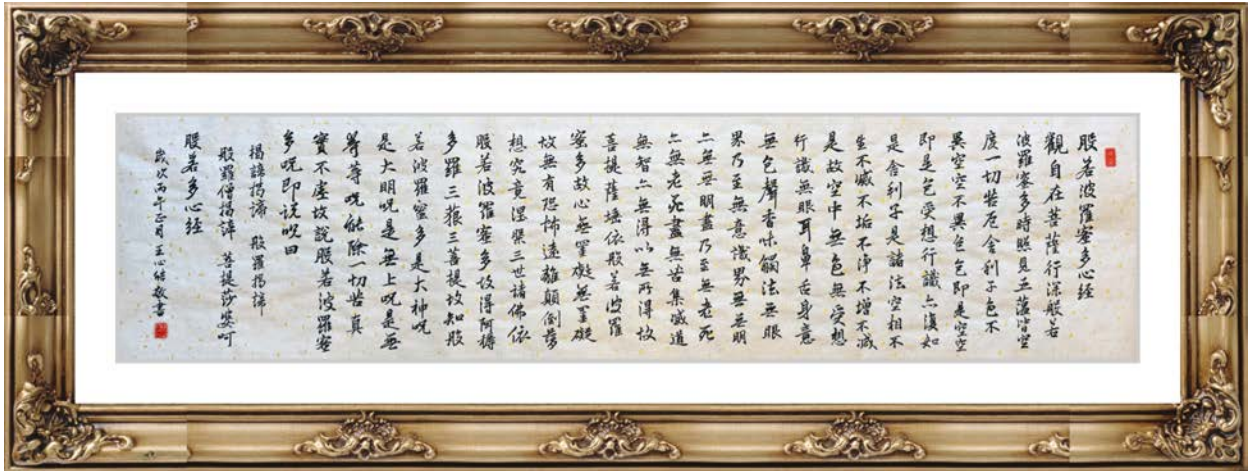 般若波羅蜜多心經
觀自在菩薩行深般若
波羅蜜多時照見五蘊皆空
度一切苦厄舍利子色不
異空空不異色色即是空空
即是色受想行識亦復如
是舍利子是諸法空相不
生不滅不垢不淨不增不減
是故空中無色無受想
行識無眼耳鼻舌身意
無色聲香味觸法無眼
界乃至無意識界無無明
亦無無明盡乃至無老死
亦無老死盡無苦集滅道
無智亦無得以無所得故
菩提薩埵依般若波羅
蜜多故心無罣礙無罣礙
故無有恐怖遠離顛倒夢
想究竟涅槃三世諸佛依
般若波羅蜜多故得阿耨
多羅三藐三菩提故知般
若波羅蜜多是大神呪
是大明呪是無上呪是無
等等呪能除一切苦真
實不虛故說般若波羅蜜
多呪即說呪曰
揭諦揭諦 般羅揭諦
般羅僧揭諦 菩提莎婆呵
般若多心經
歲次丙午正月王心敬書